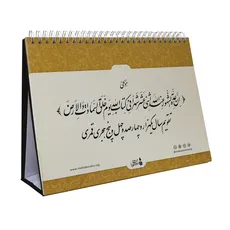 ﴿ إن عدة الشهور عند الله اثنا عشر شهرا في كتاب الله يوم خلق السماوات والأرض ﴾
تقویم سال یکهزار و چهارصد و چهل و پنج هجری قمری